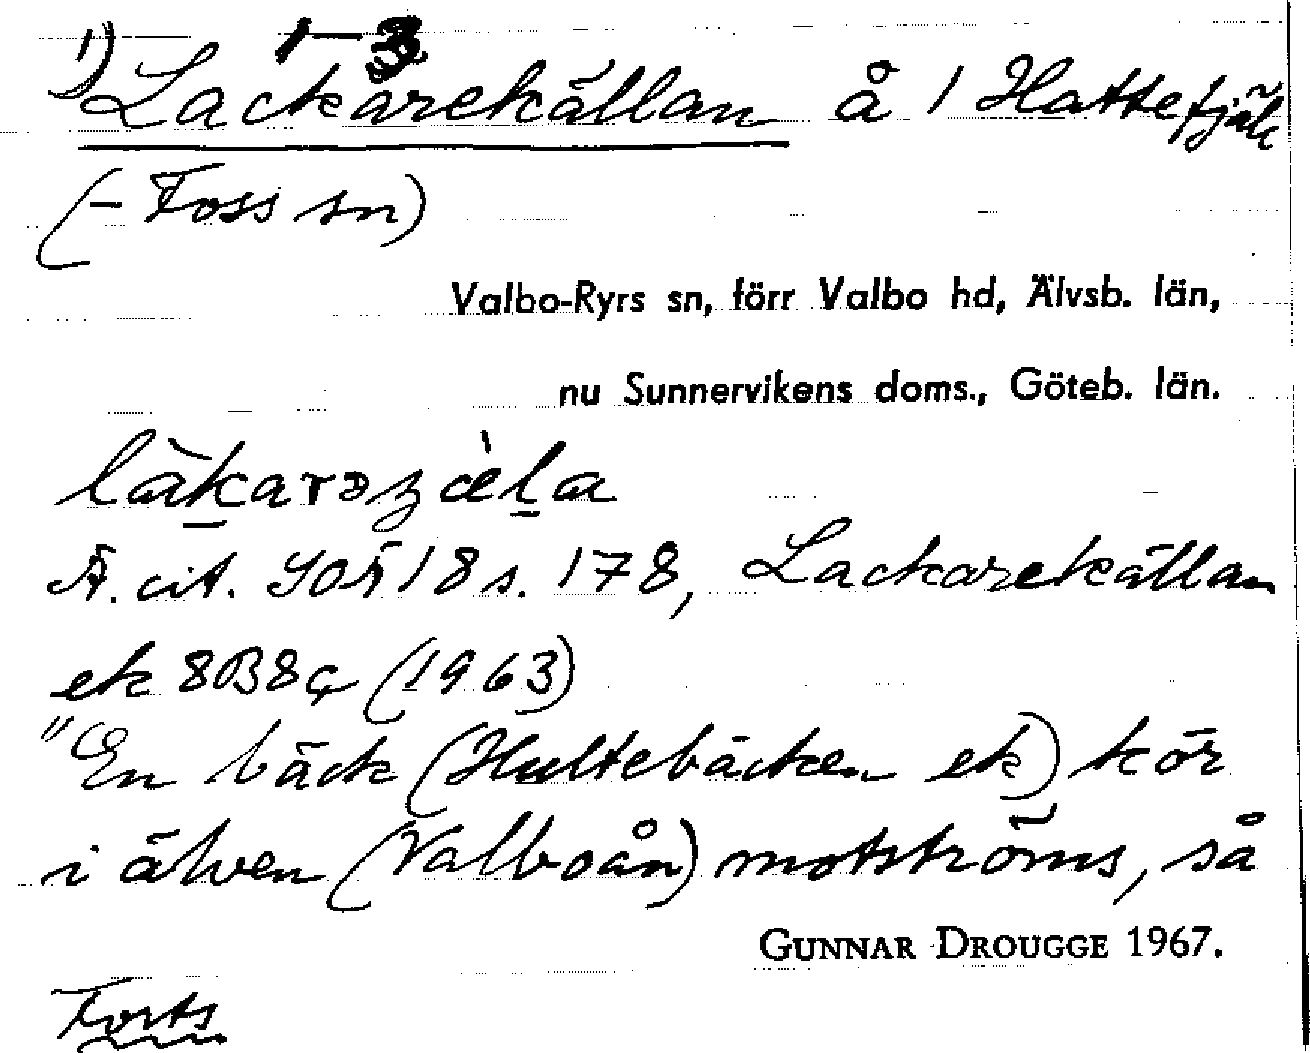 1) 1-3
Lackarekällan å 1 Hattefjäll
(- Foss sn)
Valbo-Ryrs sn, förr Valbo hd, Älvsb. län,
nu Sunnervikens doms., Göteb. län.
Ä. cit. SOÄ 18 s. 178, Lackarekällan
ek 8B8ç (1963)
"En bäck (Hultebäcken ek) kör
i älven (Valboån) motströms, så
GUNNAR DROUGGE 1967.
Forts